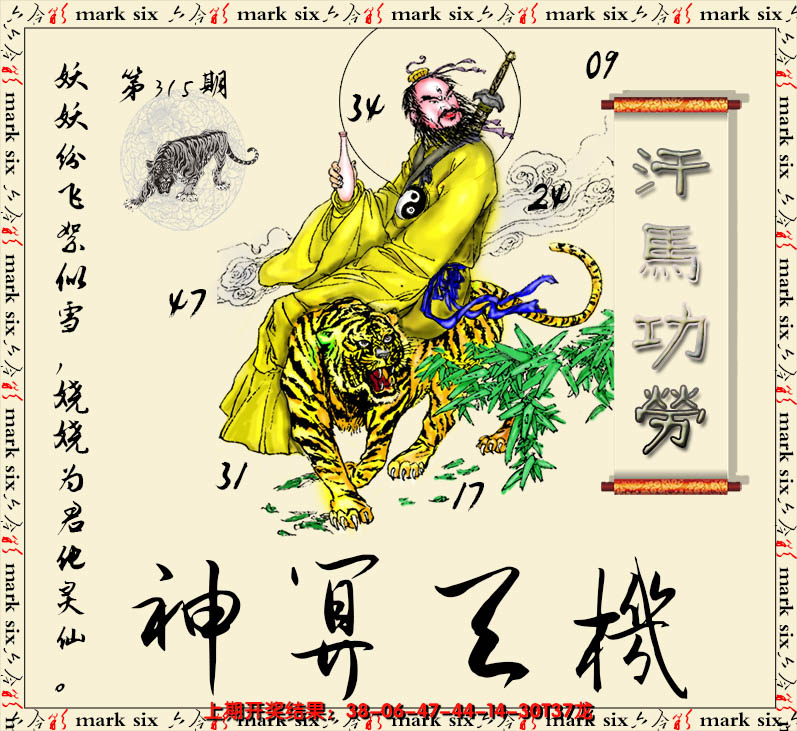 第315期
妖妖纷飞絮似雪，娆娆为君化灵仙。
09
34
24
47
31
17
汗馬功勞
神算天機
上期开奖结果：38-06-47-44-14-30T37龙
六合彩 mark six